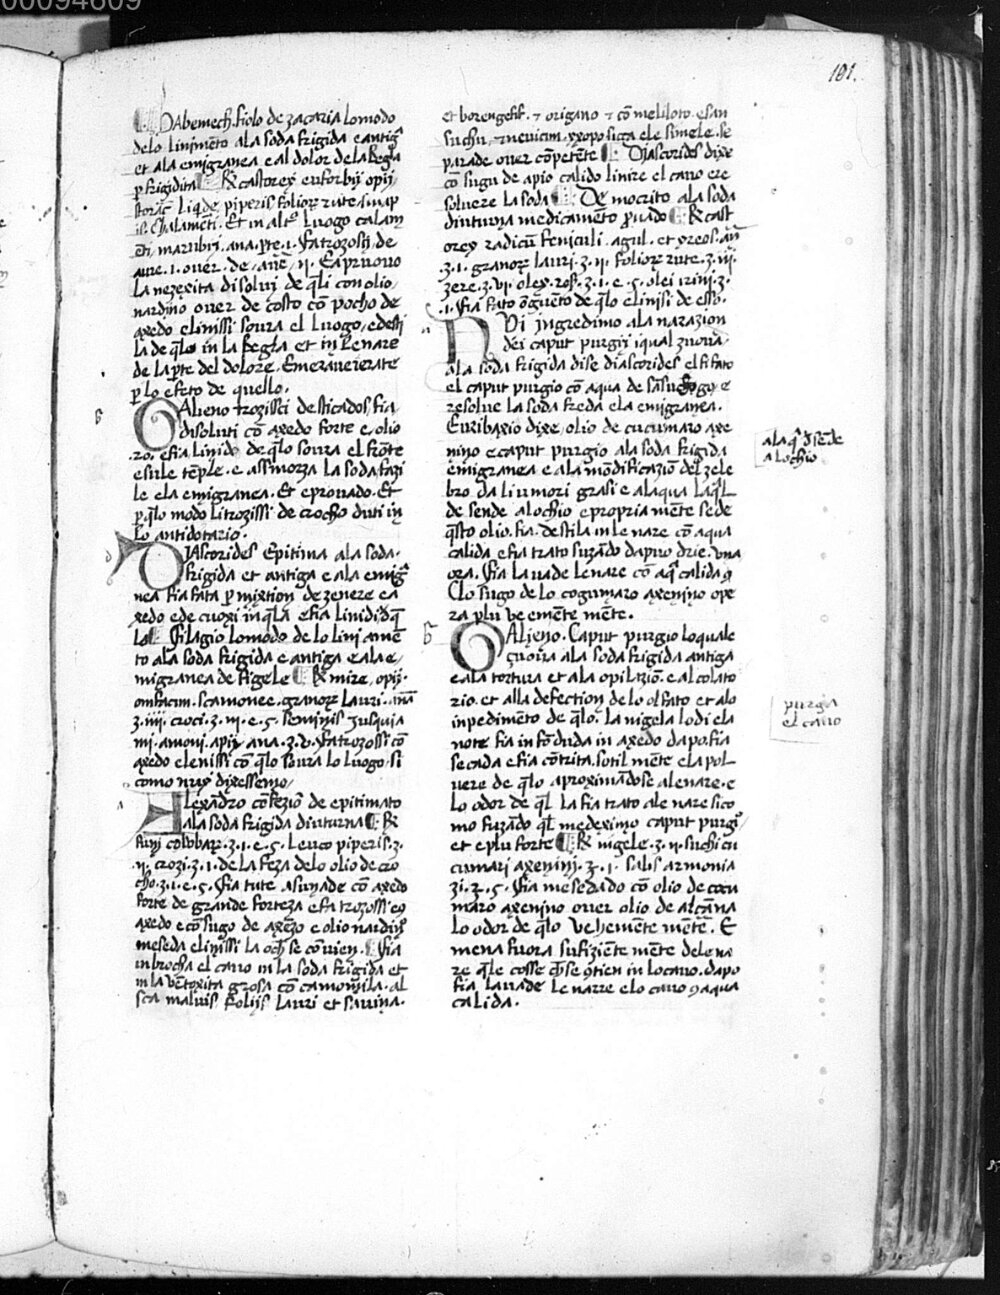 00094609
101.
Abemech fiolo de zacaria lo modo
delo linimẽto ala soda frigida e antigᵃ
et ala emigranea e al dolor de la Regla
ꝑ frigidita ℞ castorey euforbij opij
storac̃ liqͥde piperis folioꝝ rute sinap
is. Chalamẽti. Et in altº luogo calam
ẽti, marubij, ana. ꝑte. 1. fa trozosij, de
aure. 1. over. de. anẽ. ij. E a pruovo
la nezexita disolvi de q̃li con olio,
nardino over de costo cõ pocho de
axedo e linissi soura el luogo, e desti
la de q̃lo in la Regla et in le nare
de la ꝑte del dolore. E meraveierate
ꝑ lo efeto de quello.
GAlieno trozissi de sticados, fia
disoluti cõ axedo forte e, olio
.ro. e fia linido de q̃lo soura el frõte
e sule tẽple. e assmorza la soda fazi
le e la emigranea. Et e provado. Et
ꝑ q̃lo modo li trozissi de crocho duti in
lo antidotario.
DIascorides Epitima ala soda.
frigida et antiga e ala emigᵃ
nea fia fata ꝑ mixtion de zenere e a
xedo e de cuoxi in q̃la e fia linidi de q̃
lo filagio lo modo de lo linimen
to ala soda frigida e antiga e ala e,
migranea de Rigele ℞ mire, opij.
onfacini. scamonee. granoꝝ lauri. ana
ʒ. iiij. croci. ʒ. iij. e. s. seminis Jusquia
mi. amoni. apij. ana. ʒ. v. fa trozossi cõ
axedo e lenissi cõ q̃lo soura lo luogo, si
como nuy dixessemo,
ALexandro cõfezion de epitimato
ala soda frigida diuturna ℞
fumi colõbaꝝ. ʒ. 1. e. s. leuco piperis. ʒ.
ij. crozi. ʒ. 1. de la feza delo olio de cro
cho. ʒ. 1. e. s. fia tute a sunade cõ axedo
forte de grande forteza e fa trozossi e 9
axedo e cõ sugo de axẽzo e olio nardino
meseda e linissi la och̃ se cõvien. fia
inbrocha el cavo in la soda frigida et
in la vẽtoxita grosa cõ camomila. al
sca malvis foliis lauri et savina.
et borengefit. ⁊ origano ⁊ cõ meliloto e san
suchu, ⁊ nevicim. yxopo siga e le simele. se
parade over cõpetẽte Djascorides dixe
cõ sugu de apio calido linire el cavo e re
solvere la soda De mocrito ala soda
diuturna medicamẽto ꝓvado ℞ cast
orey radicũ feniculi. agul. et yreos. añ
.ʒ. 1. granoꝝ lauri. ʒ. ij. folioꝝ rute. ʒ. iij.
zere. ʒ. vi. oley. ros. ʒ. 1. e. s. olei irini. ʒ.
.1. fia fato õguẽto de q̃lo e linissi de esso.
NVi ingredimo ala narazion
dei caput purgij i qual zuova
ala soda frigida dise diascorides el fi fato
el caput purgio cõ aqua de sãsuego e
resolve la soda freda e la emigranea.
Euribaxio dixe, olio de cucumaro axe
nino e caput purgio ala soda frigida
emigranea e ala mõdificaziõ del zele
bro da li umori grasi e alaqua la q̃l
de sende alochio e propria mẽte se de
q̃sto olio. fia. destila in le nare cõ aqua
calida e fia trato suzãdo dapuo drie. una
ora. fia lavade le nare cõ aqͣ calida 9
Clo sugo de lo cogumaro axenino ope
ra plu veemẽte mẽte.
GAlieno. Caput purgio lo quale
çuova ala soda frigida antiga
e ala tortura et ala opilaziõ. e al colato
rio. et alla defection de lo olfato et alo
inpedimẽto de q̃lo. la nigela lodi e la
note fia infõduda in axedo dapo. fia
secada e fia cõtrita. sotil mẽte e la pol
vere de q̃lo aproximãdose ale nare. e
lo odor de q̃l la fia trato ale nare sico
mo fuzãdo q̃l medeximo caput purgio
et e plu forte ℞ nigele. ʒ. ij. suchi cu
cumari axenini. ʒ. 1. salis armonia
zi. ʒ. s. fia mesedado cõ olio de cocu
maro axenino over olio de alcãna
lo odor de q̃lo vehemẽte mẽte. E
mena fuora sufiziẽte mẽte dele na
re q̃le cosse ch̃ se 9tien in lo cavo. dapo
fia lavade le narre e lo cavo 9 aqua
calida.
ala qͣ ch̃ sẽde
alochio
purgia
el cavo